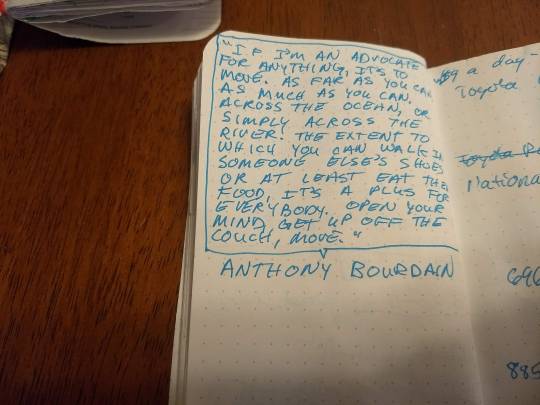 "IF I'M AN ADVOCATE
FOR ANYTHING, IT'S TO
MOVE. AS FAR AS YOU CAN,
AS MUCH AS YOU CAN.
ACROSS THE OCEAN, OR
SIMPLY ACROSS THE
RIVER. THE EXTENT TO
WHICH YOU CAN WALK IN
SOMEONE ELSE'S SHOES
OR AT LEAST EAT THEIR
FOOD, IT'S A PLUS FOR
EVERYBODY. OPEN YOUR
MIND, GET UP OFF THE
COUCH, MOVE."
ANTHONY BOURDAIN
a day -
Toyota
Toyota
Nationa
696
885